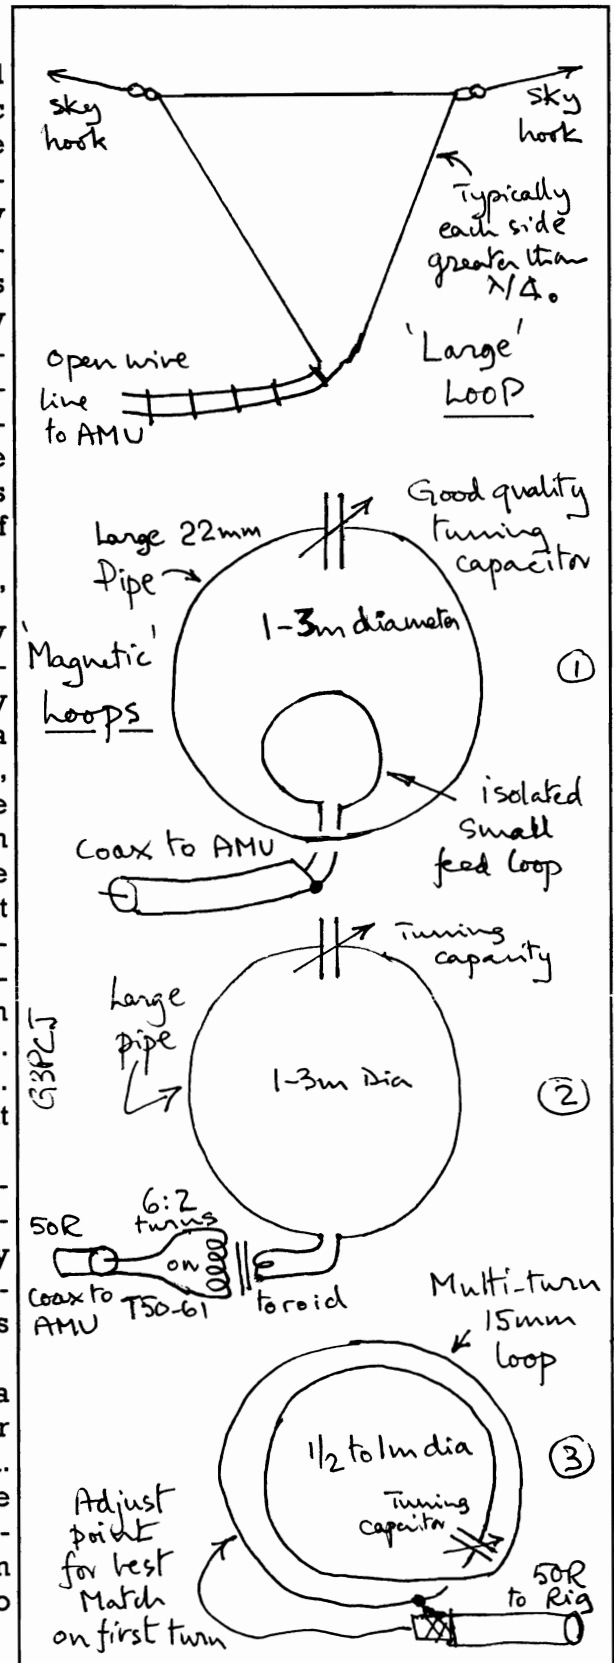 Sky
hook
Sky
hook
Typically
each side
greater than
λ/4.
'Large'
LOOP
Open wire
line
to AMU
Good quality
tuning
capacitor
Large 22mm
Pipe
1-3m diameter
'Magnetic'
Loops
①
isolated
small
feed loop
Coax to AMU
Tuning
capacity
Large
pipe
G3PCJ
1-3m Dia
②
6:2
turns
50R
on
Coax to
AMU
T50-61
toroid
Multi-turn
15mm
loop
1/2 to 1m dia
③
Tuning
Capacitor
Adjust
point
for best
Match
on first turn
50R
to Rig